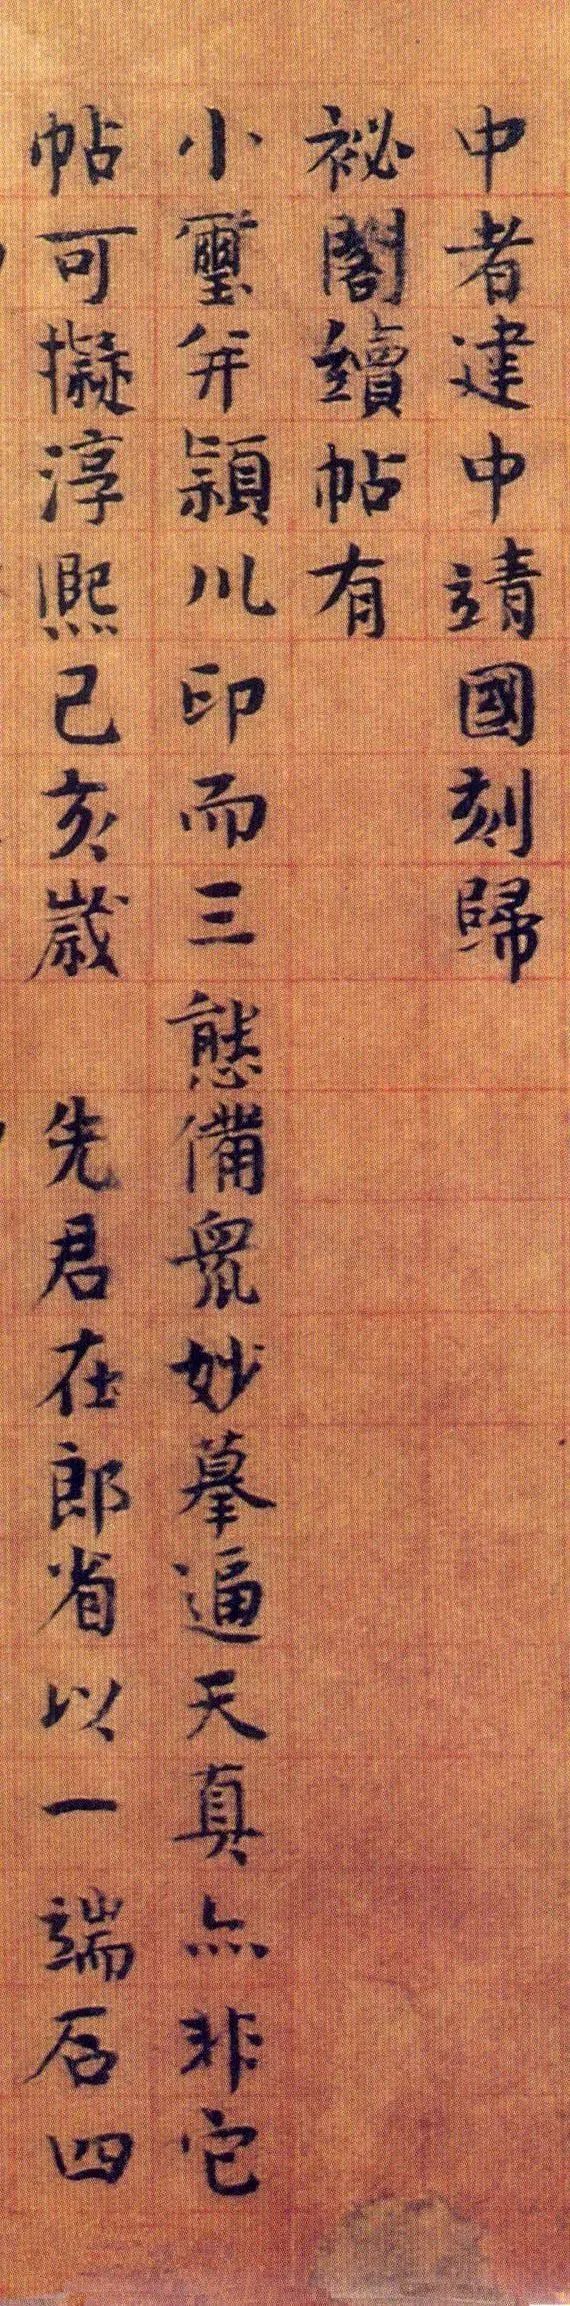 中者建中靖國刻歸
祕閣續帖有
小璽并潁川印而三態備衆妙摹逼天真亦非它
帖可擬淳熙己亥歲 先君在郎省以一端石四